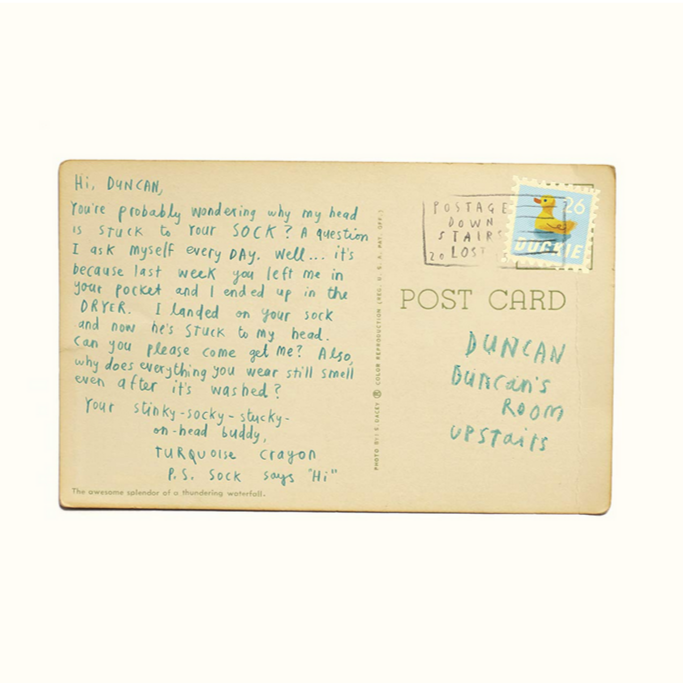 Hi, DUNCAN,
You're probably wondering why my head
is STUCK to Your SOCK? A question
I ask myself every DAY. Well... it's
because last week you left me in
your pocket and I ended up in the
DRYER. I landed on your sock
and now he's STUCK to my head.
Can you please come get me? Also,
why does everything you wear still smell
even after it's washed?
Your stinky-socky-stucky-
on-head buddy,
TURQUOISE Crayon
P.S. SOCK says "Hi"
The awesome splendor of a thundering waterfall.
PHOTO BY: E. DACEY Ⓒ COLOR REPRODUCTION (REG. U. S. A. PAT. OFF.)
POSTAGE
DOWN
STAIRS
20 LOST
26
DUCKIE
POST CARD
DUNCAN
Duncan's
Room
UPSTairs